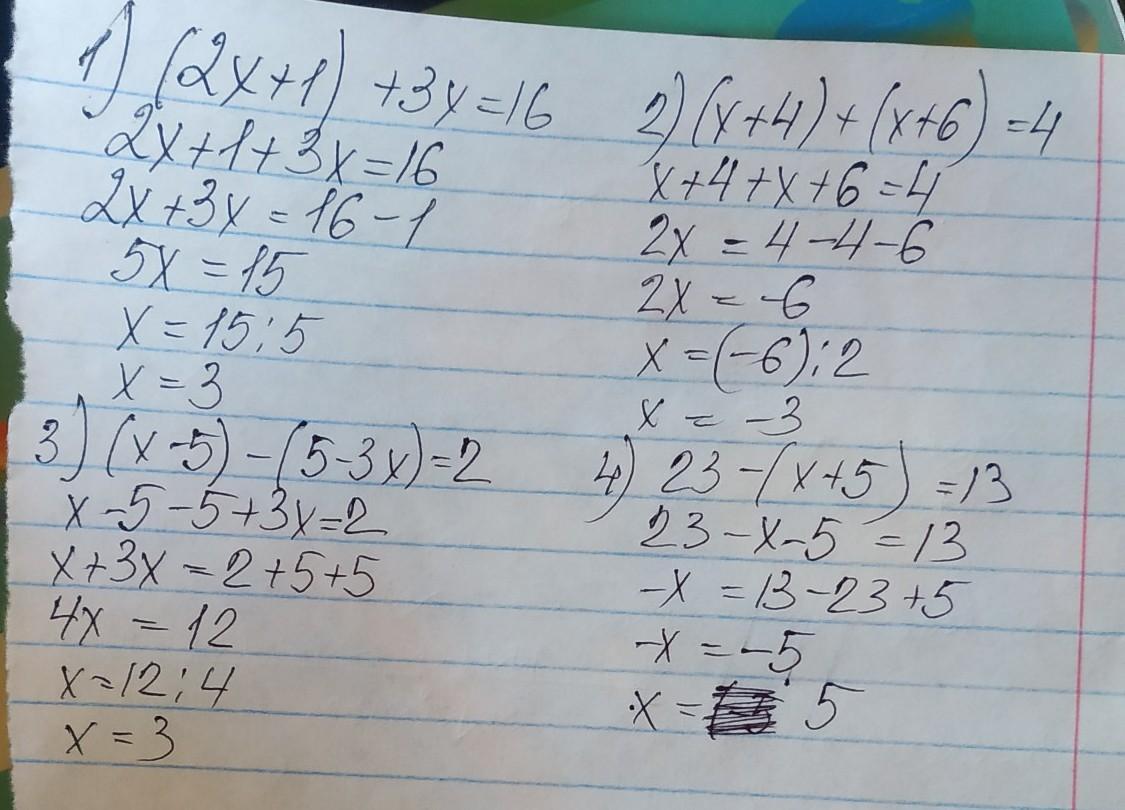 1) (2x+1) +3x=16
2x+1+3x=16
2x+3x=16-1
5x=15
x=15:5
x=3
2) (x+4)+(x+6)=4
x+4+x+6=4
2x=4-4-6
2x=-6
x=(-6):2
x=-3
3) (x-5)-(5-3x)=2
x-5-5+3x=2
x+3x=2+5+5
4x=12
x=12:4
x=3
4) 23-(x+5)=13
23-x-5=13
-x=13-23+5
-x=-5
x= 5